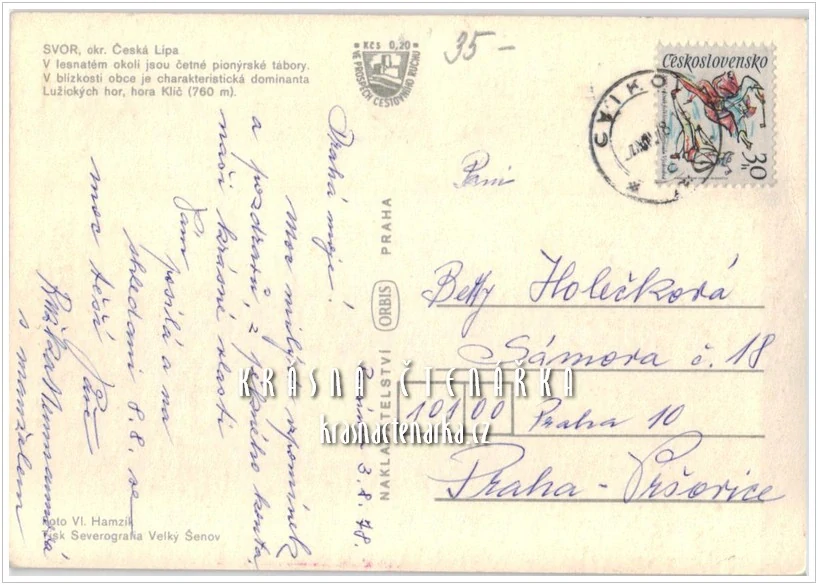 SVOR, okr. Česká Lípa
V lesnatém okolí jsou četné pionýrské tábory.
V blízkosti obce je charakteristická dominanta
Lužických hor, hora Klíč (760 m).
KČS 0,20
VE PROSPĚCH CESTOVNÍHO RUCHU
35-
Československo
30 h
CVIKOV
Drahá moje!
Moc milých vzpomínek
a pozdravů, z pěkného koutu
naší krásné vlasti
Vám posílá a na
shledání 8.8. se
moc těší Vaše
Růžka
s manželem
3.8.78.
NAKLADATELSTVÍ ORBIS PRAHA
Paní
Betty Holečková
Sámova č. 18
10100 Praha 10
Praha-Vršovice
KRÁSNÁ ČTENÁŘKA
krasnactenarka.cz
Foto Vl. Hamzík
Tisk Severografia Velký Šenov